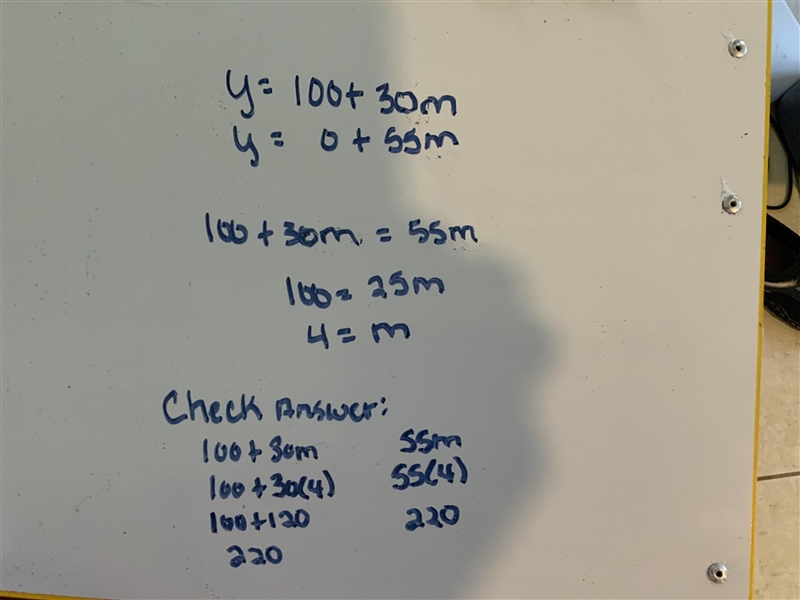 y = 100 + 30m
y = 0 + 55m
100 + 30m = 55m
100 = 25m
4 = m
Check Answer:
100 + 30m 55m
100 + 30(4) 55(4)
100 + 120 220
220